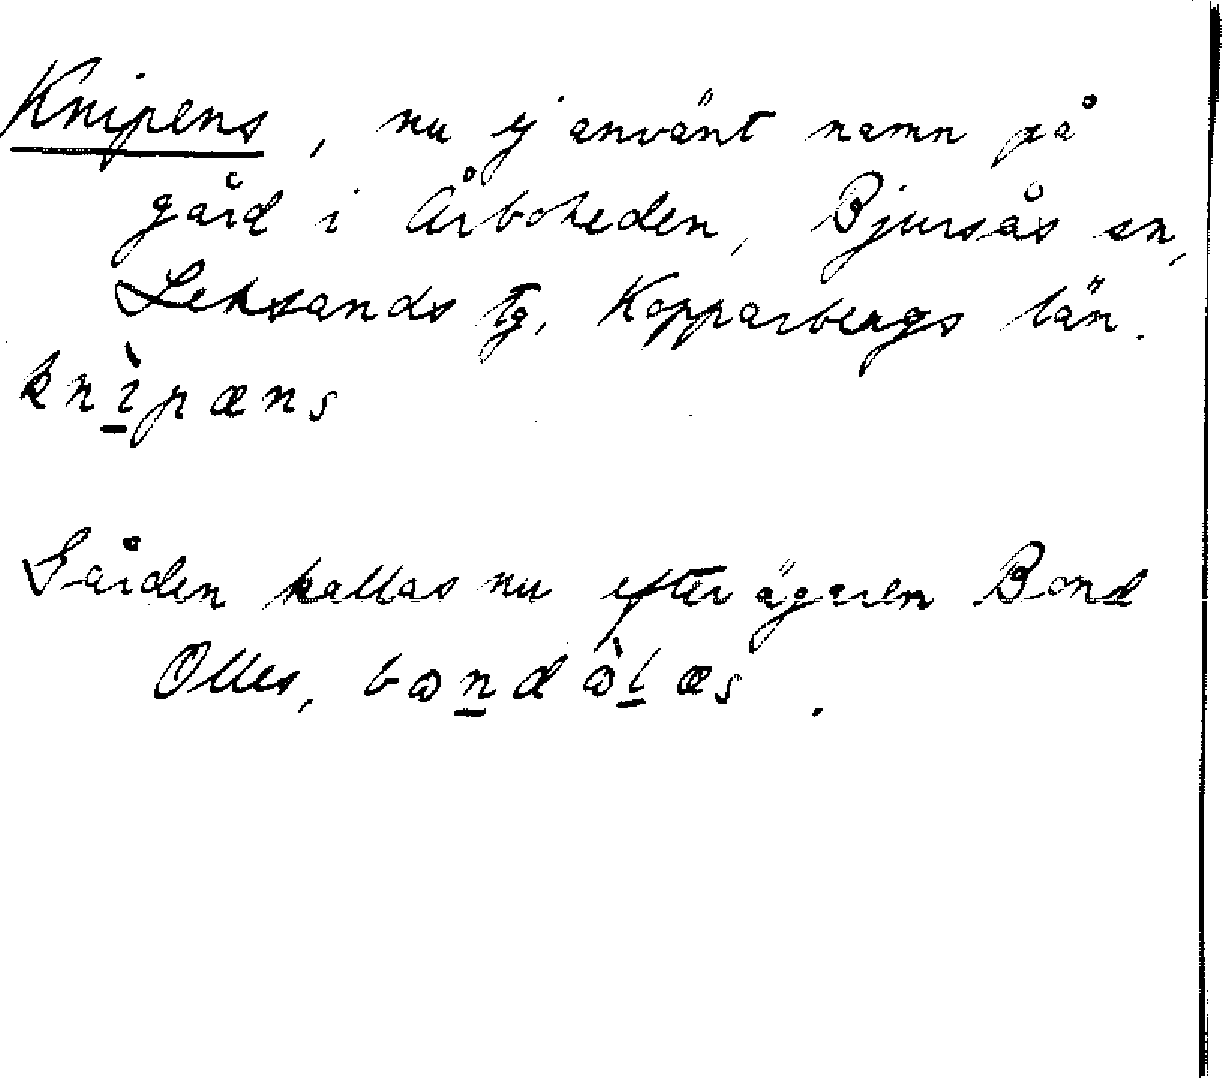 Knipens, nu ej använt namn på
gård i Årboheden, Bjursås sn,
Leksands tg, Kopparbergs län.
knì̲pæns
Gården kallas nu efter ägaren Bond
Olles, bɷn̲dɷ̀l̲æs.